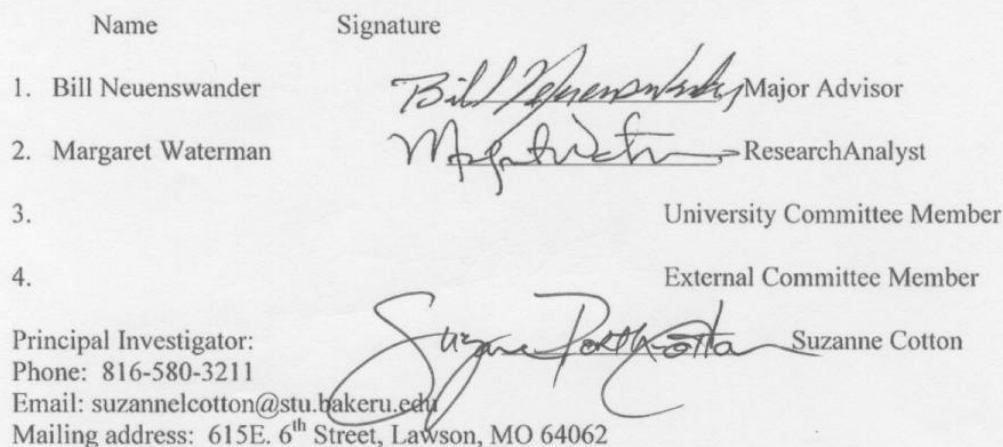 Name Signature
1. Bill Neuenswander Bill Neuenswander, Major Advisor
2. Margaret Waterman ResearchAnalyst
3. University Committee Member
4. External Committee Member
Principal Investigator: Suzanne Cotton
Phone: 816-580-3211
Email: suzannelcotton@stu.bakeru.edu
Mailing address: 615E. 6th Street, Lawson, MO 64062